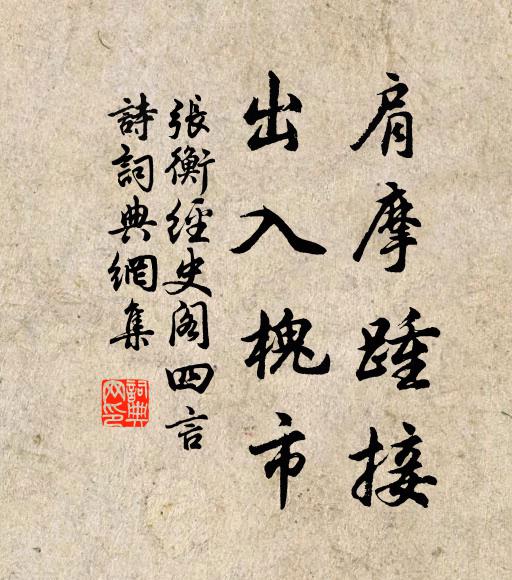 肩摩踵接
出入槐市
張衡經史閣四言
詩詞典網集
詞典
网印